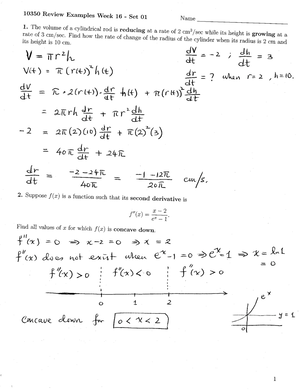 10350 Review Examples Week 16 - Set 01 Name
1. The volume of a cylindrical rod is reducing at a rate of 2 cm³/sec while its height is growing at a
rate of 3 cm/sec. Find how the rate of change of the radius of the cylinder when its radius is 2 cm and
its height is 10 cm.
V = πr²h
dV/dt = -2 ; dh/dt = 3
V(t) = π(r(t))²h(t)
dr/dt = ? when r=2, h=10.
dV/dt = π·2(r(t))·dr/dt h(t) + π(r(t))² dh/dt
= 2πrh dr/dt + πr² dh/dt
-2 = 2π(2)(10) dr/dt + π(2)²(3)
= 40π dr/dt + 12π
dr/dt = (-2-24π)/40π = (-1-12π)/20π cm/s.
2. Suppose f(x) is a function such that its second derivative is
f''(x) = (x-2)/(eˣ-1).
Find all values of x for which f(x) is concave down.
f''(x) = 0 ⇒ x-2=0 ⇒ x = 2
f''(x) does not exist when eˣ-1=0 ⇒ eˣ=1 ⇒ x = ln 1
= 0
f''(x) > 0 f''(x) < 0 f''(x) > 0
0 1 2
eˣ
y=1
concave down for 0 < x < 2
1